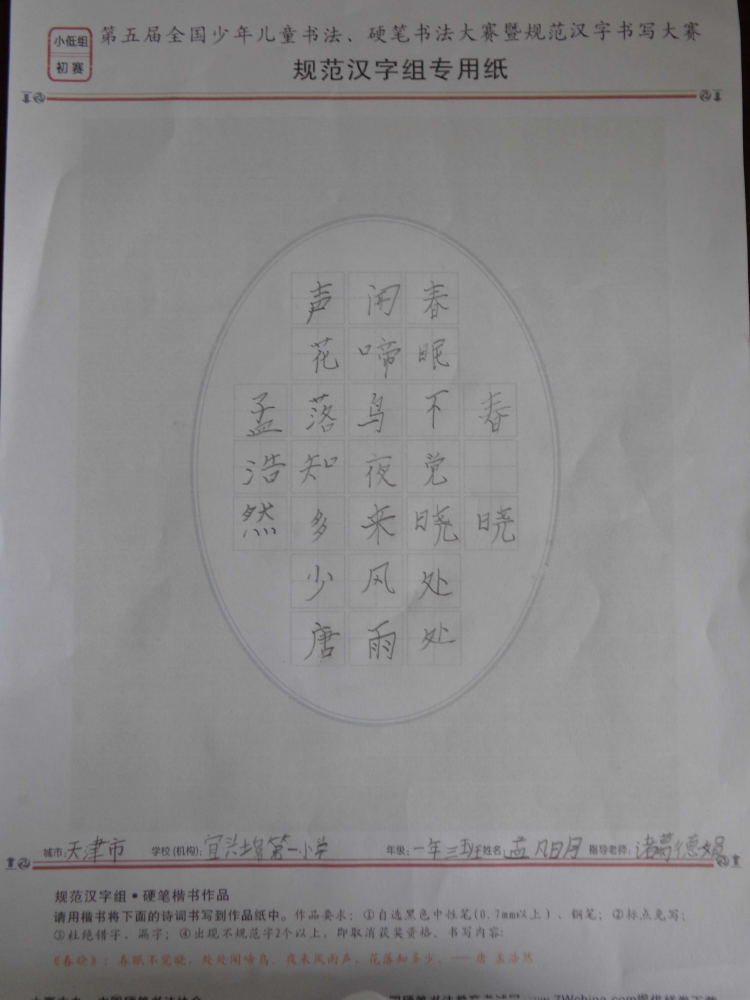 小低组
初赛
第五届全国少年儿童书法、硬笔书法大赛暨规范汉字书写大赛
规范汉字组专用纸
春晓
春眠不觉晓处处
闻啼鸟夜来风雨
声花落知多少唐
孟浩然
城市:天津市 学校(机构):宜兴埠第一小学 年级:一年三班 姓名:孟凡明 指导老师:诸葛德娟
规范汉字组•硬笔楷书作品
请用楷书将下面的诗词书写到作品纸中。作品要求：①自选黑色中性笔(0.7mm以上)、钢笔；②标点免写；
③杜绝错字、漏字；④出现不规范字2个以上，即取消获奖资格。书写内容：
《春晓》：春眠不觉晓，处处闻啼鸟。夜来风雨声，花落知多少。——唐 孟浩然